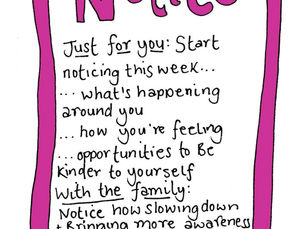 Notice
Just for you: Start
noticing this week...
... what's happening
around you
... how you're feeling
... opportunities to Be
Kinder to yourself
With the family:
Notice how slowing down
+ Bringing more awareness